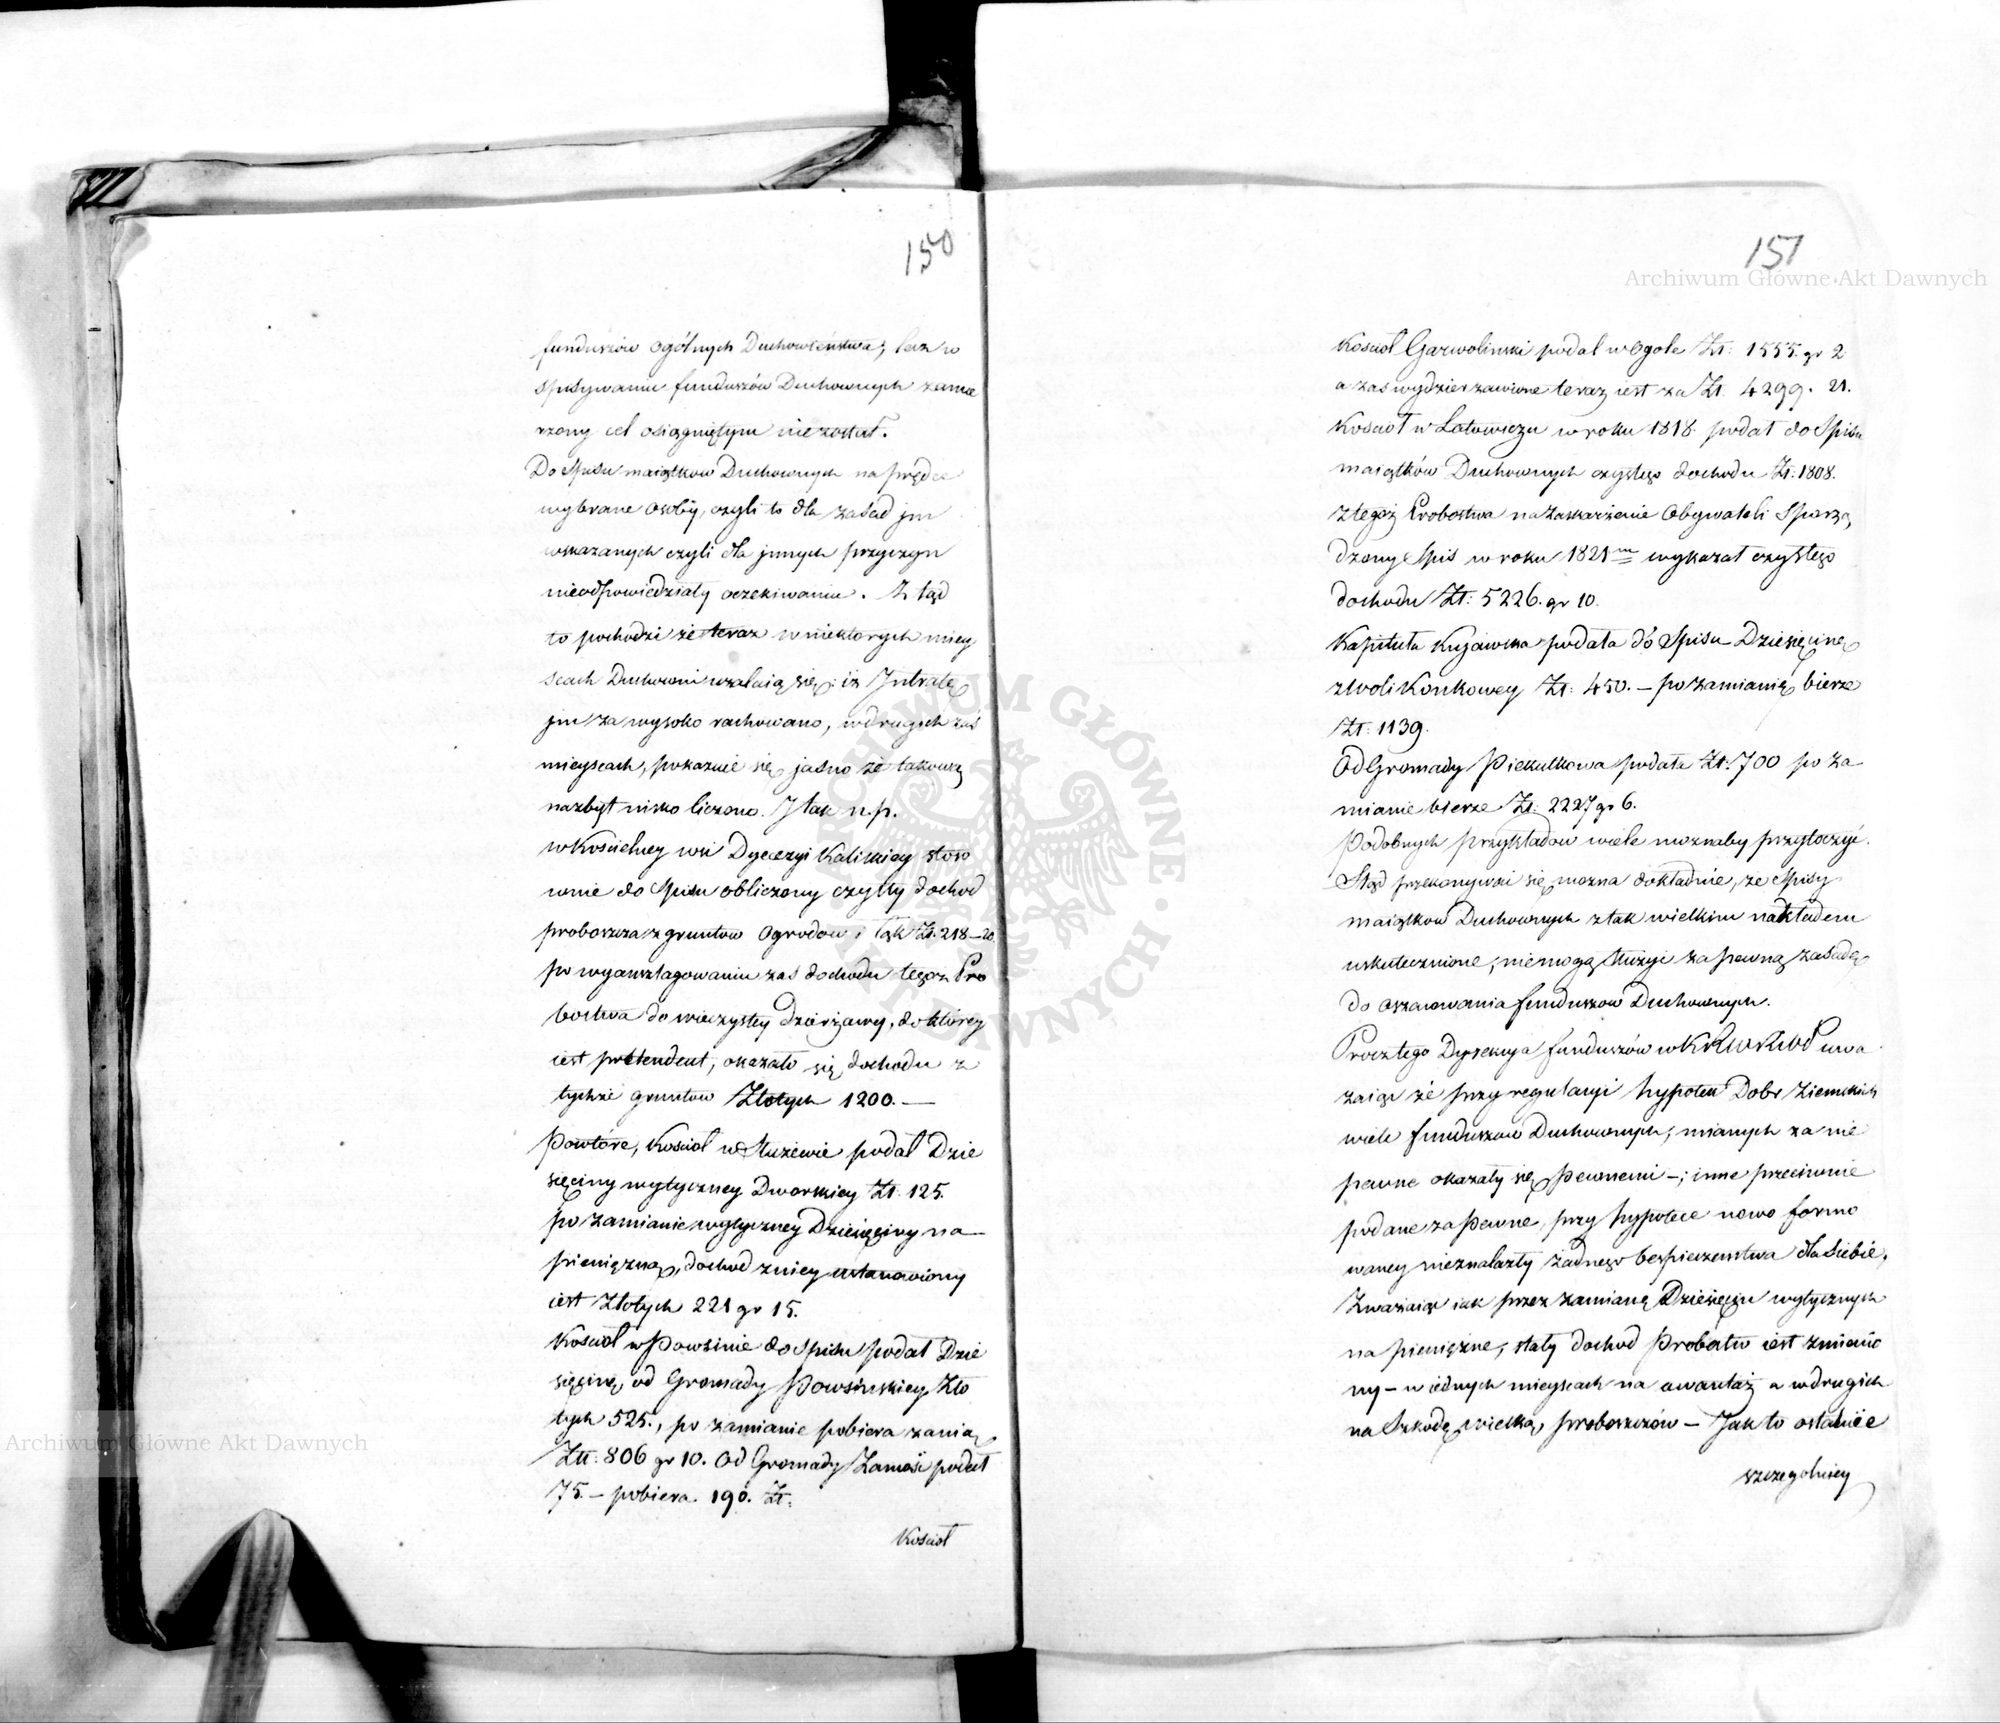 150
funduszów ogólnych Duchowieństwa, lecz w
spisywaniu funduszów Duchownych zamie
rzony cel osiągniętym nie został.
Do Spisu maiątkow Duchownych na prędce
wybrane osoby, czyli to dla zasad jm
wskazanych czyli dla jnnych przyczyn
nieodpowiedziały oczekiwaniu. Ztąd
to pochodzi że teraz w niektorych miey
scach Duchowni użalaią się, iż Jntratę
jm za wysoko rachowano, w drugich zaś
mieyscach, pokazuie się jasno że takową
nazbyt nisko liczono. J tak n.p.
w Kościelney wsi Dyecezyi Kaliskiey stoso
wnie do Spisu obliczony czysty dochod
proboszcza z gruntow Ogrodow i Łąk Zł. 218–20
po wyanszlagowaniu zas dochodu tegoz Pro
bostwa do wieczystey dzierżawy, do którey
iest pretendent, okazało się dochodu z
tychże gruntow Złotych 1200.—
Powtóre, Kosciół w Służewie podał Dzie
sięciny wytyczney Dworskiey Zł: 125.
po zamianie wytyczney Dziesięciny na
pieniężną, dochod zniey ustanowiony
iest Złotych 221 gr 15.
Kosciół w Powsinie do Spisu podał Dzie
sięcinę od Gromady Powsinskiey Zło
tych 525., po zamianie pobiera zanią
Złł: 806 gr 10. Od Gromady Zamość podał
75.– pobiera 190. Zł:
Kościoł
151
Archiwum Główne Akt Dawnych
Kosciół Garwolinski podał w Ogole Zł: 1555. gr 2
a zas wydzierzawione teraz iest za Zł. 4299. 21.
Kosciół w Latowiczu w roku 1818 podał do Spisu
maiątków Duchownych czystego dochodu Zł: 1808.
z tegoż Probostwa na zaskarżenie Obywateli Sporzą,
dzony Spis w roku 1821 m wykazał czystego
dochodu Zł: 5226. gr 10.
Kapituła Kujawska podała do Spisu Dziesięcinę
z Woli Konkowey Zł: 450. – po zamianie bierze
Zł: 1139.
Od Gromady Piekutkowa podała Zł: 700 po za
mianie bierze Zł: 2227 gr 6.
Podobnych przykładow wiele moznaby przytoczyć.
Stąd przekonywać się mozna dokładnie, ze Spisy
maiątkow Duchownych z tak wielkim nakładem
uskutecznione, niemogą służyć za pewną zasadę
do oszacowania funduszow Duchownych.
Procz tego Dyrekcyia funduszów w KRWRiOP uwa
zaiąc że przy regulacyi hypotek Dobr Ziemskich
wiele funduszów Duchownych, mianych za nie
pewne okazały się pewnemi –; inne przeciwnie
podane za pewne, przy hypotece nowo formo
waney nieznalazły żadnego bespieczenstwa dla siebie,
Zważaiąc iak przez zamianę Dziesięcin wytycznych
na pieniężne, stały dochod Probostw iest zmienio
ny – w iednych mieyscach na awantaż a w drugich
na Szkodę wielką, proboszczów – Jak to ostatnie
szczegolniey
Archiwum Główne Akt Dawnych
ARCHIWUM GŁÓWNE AKT DAWNYCH